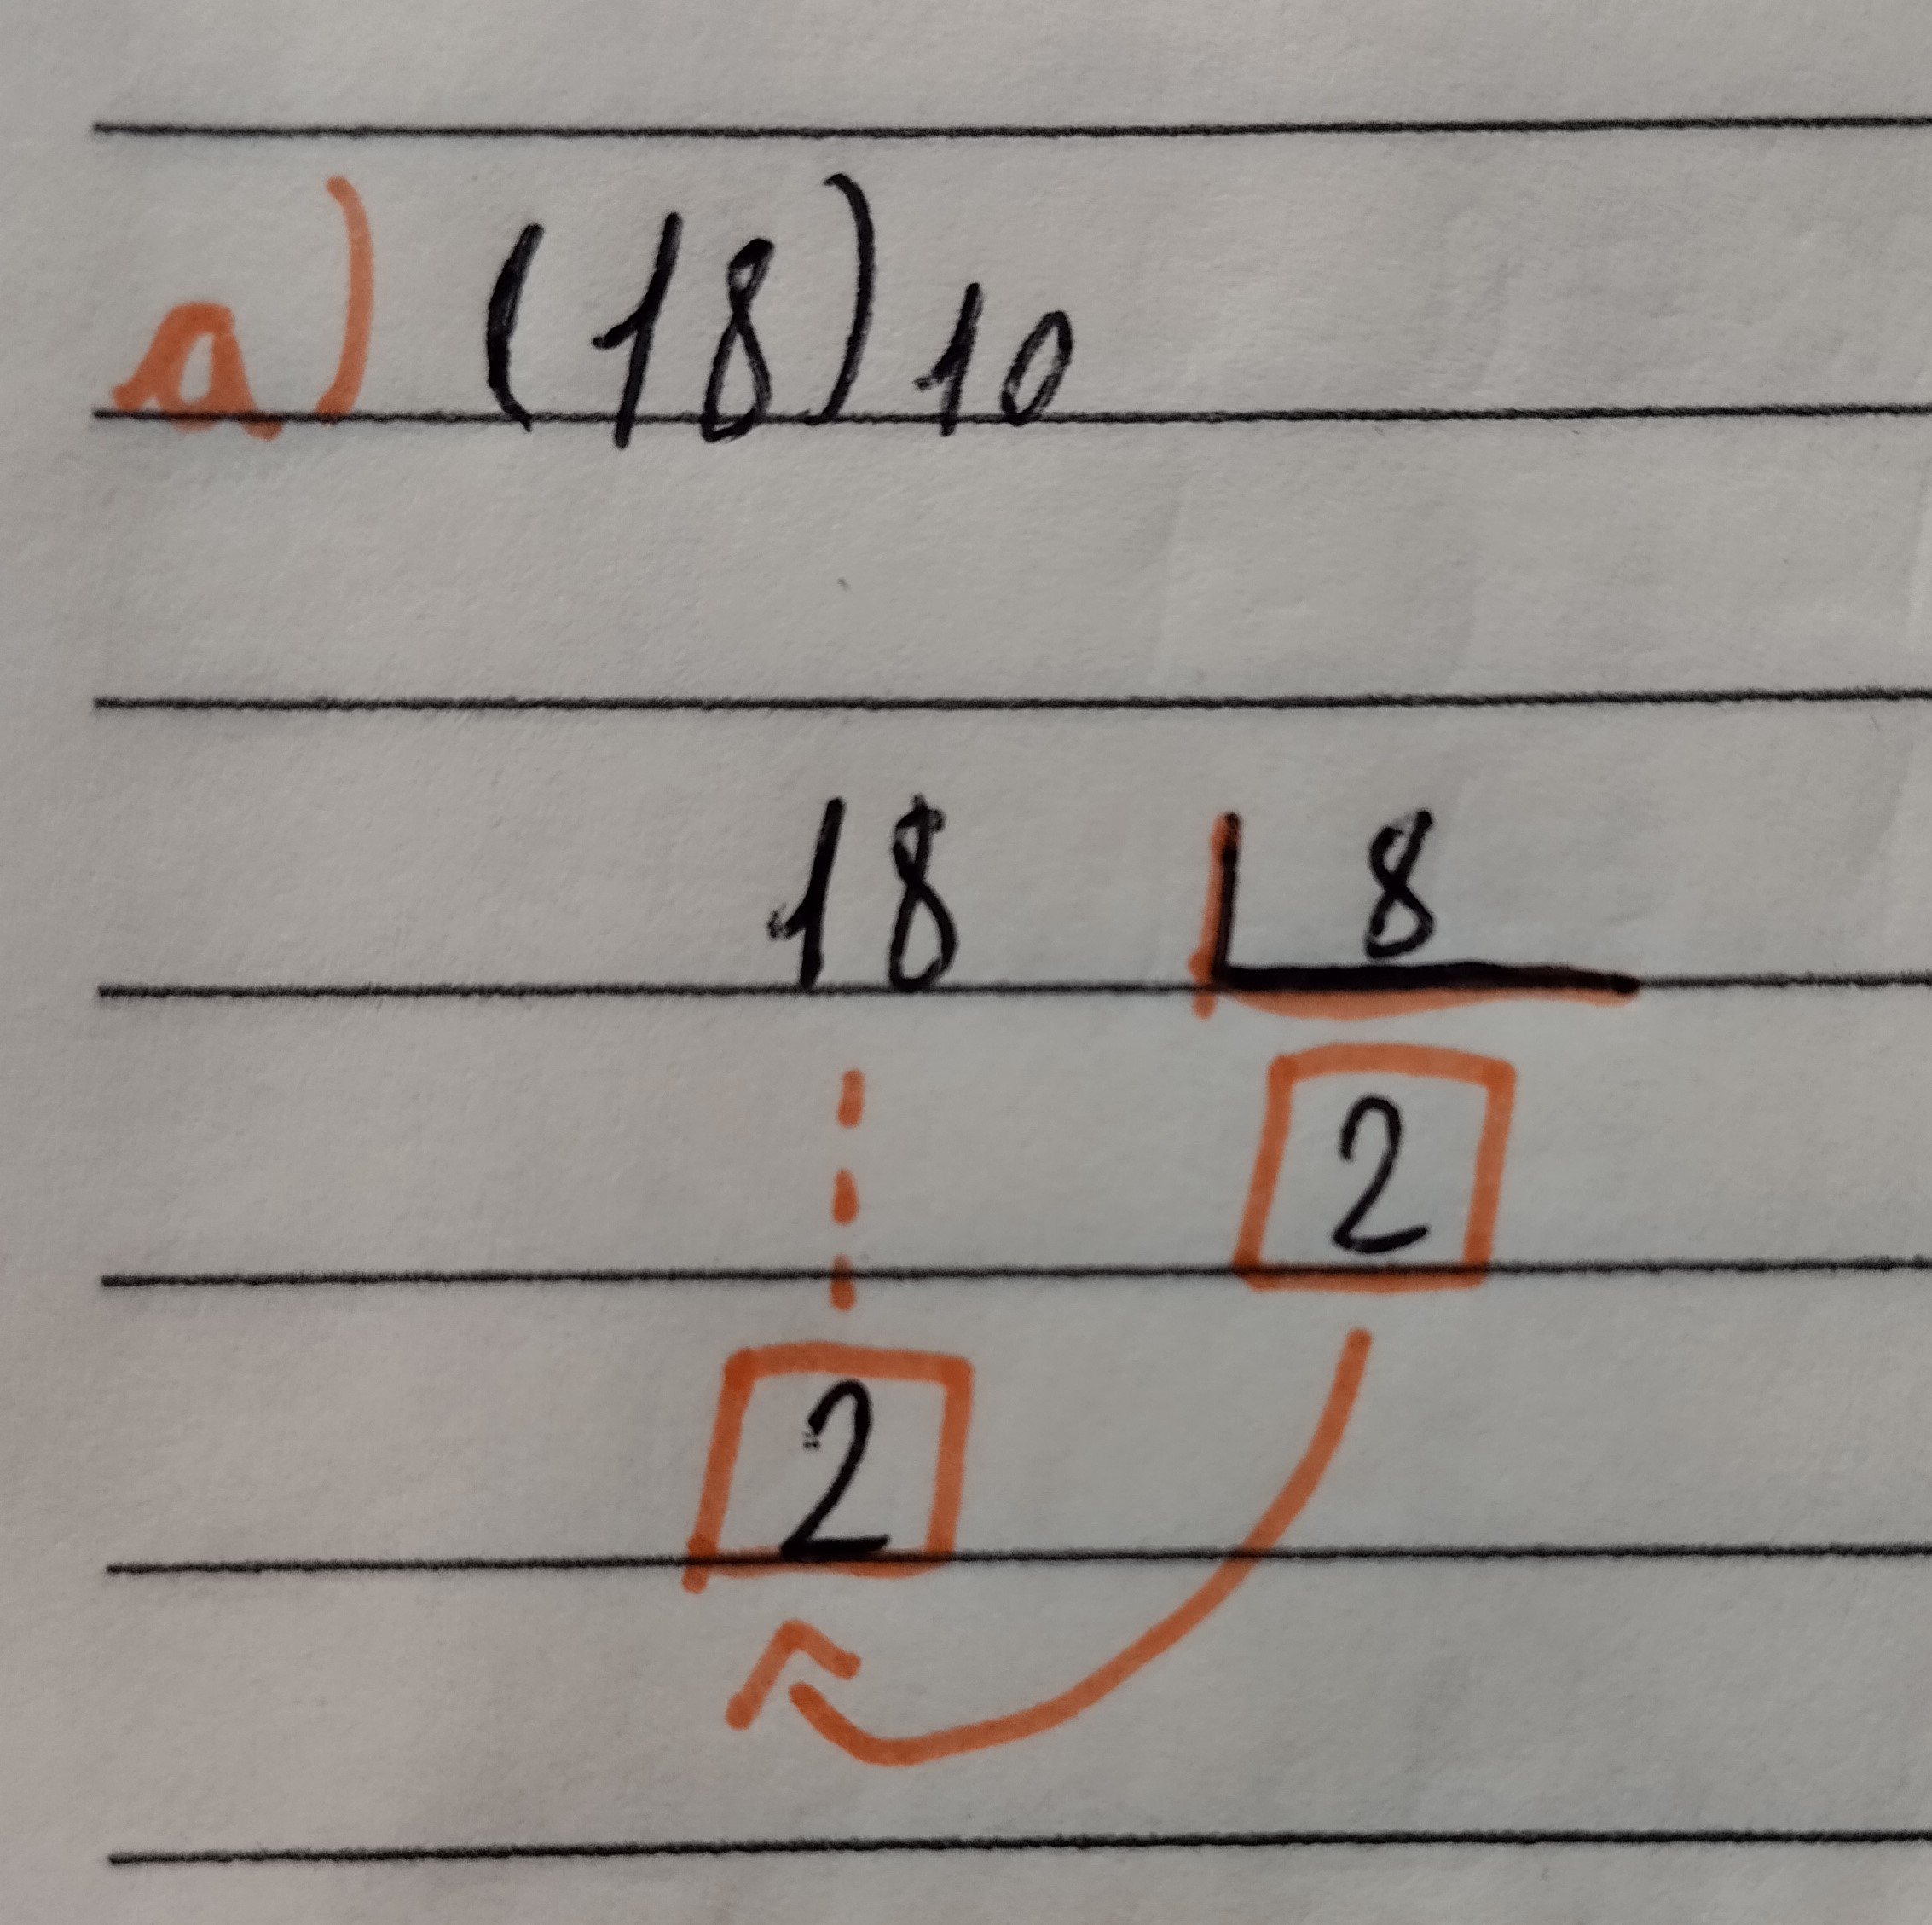 a) (18)10
18 8
2
2